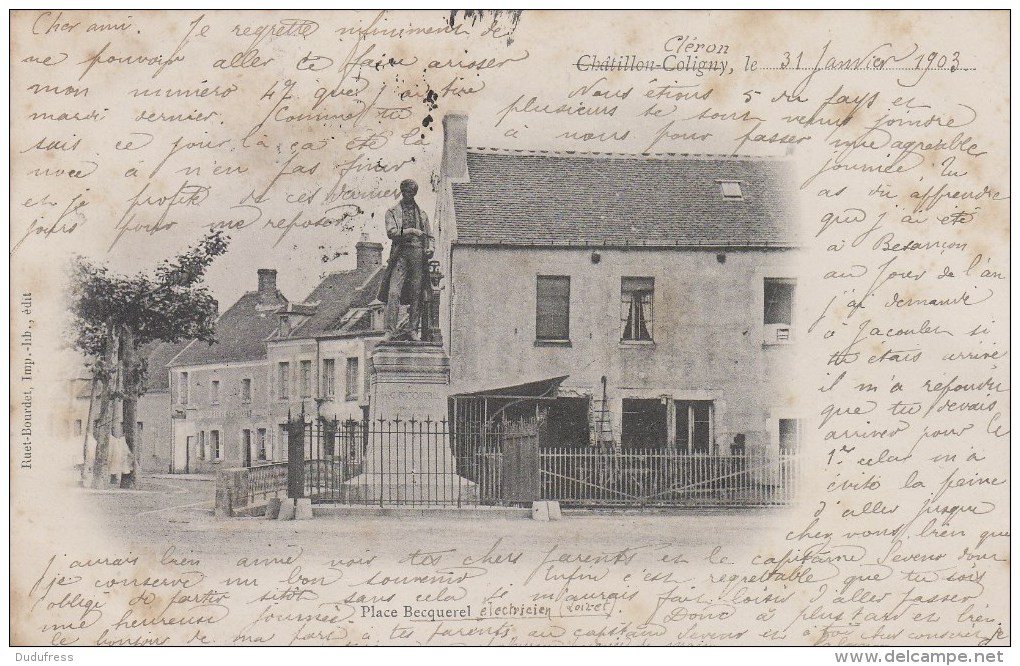 Cher ami. Je regrette infiniment de
ne pouvoir aller te faire arroser
mon numéro 47 que j'ai tiré
mardi dernier. Comme tu
sais ce jour là ça été la
à n'en pas finir
et je profite de ces derniers
jours pour me reposer.
Cléron
Châtillon-Coligny, le 31 Janvier 1903
Nous étions 5 du pays et
plusieurs se sont venus joindre
à nous pour passer une agréable
journée. Tu
as dû apprendre
que j'ai été
à Besançon
au Jour de l'an
j'ai demandé
à Jacoulet si
tu étais arrivé
il m'a répondu
que tu devais
arriver pour le
1er cela m'a
évité la peine
d'aller jusque
chez vous, bien que
j'aurais bien aimé voir tes chers parents et le capitaine Sevens dont
je conserve un bon souvenir. Enfin c'est regrettable que tu sois
obligé de partir sitôt sans cela je m'aurais fait loisir d'aller passer
une heureuse journée
Donc à plus tard et bien
le bonjour de ma part à tes parents au capitaine Sevens et à toi cher
Ruet-Bourdet, Imp.-lib., édit
Place Becquerel électricien (Loiret).
Dudufress
www.delcampe.net